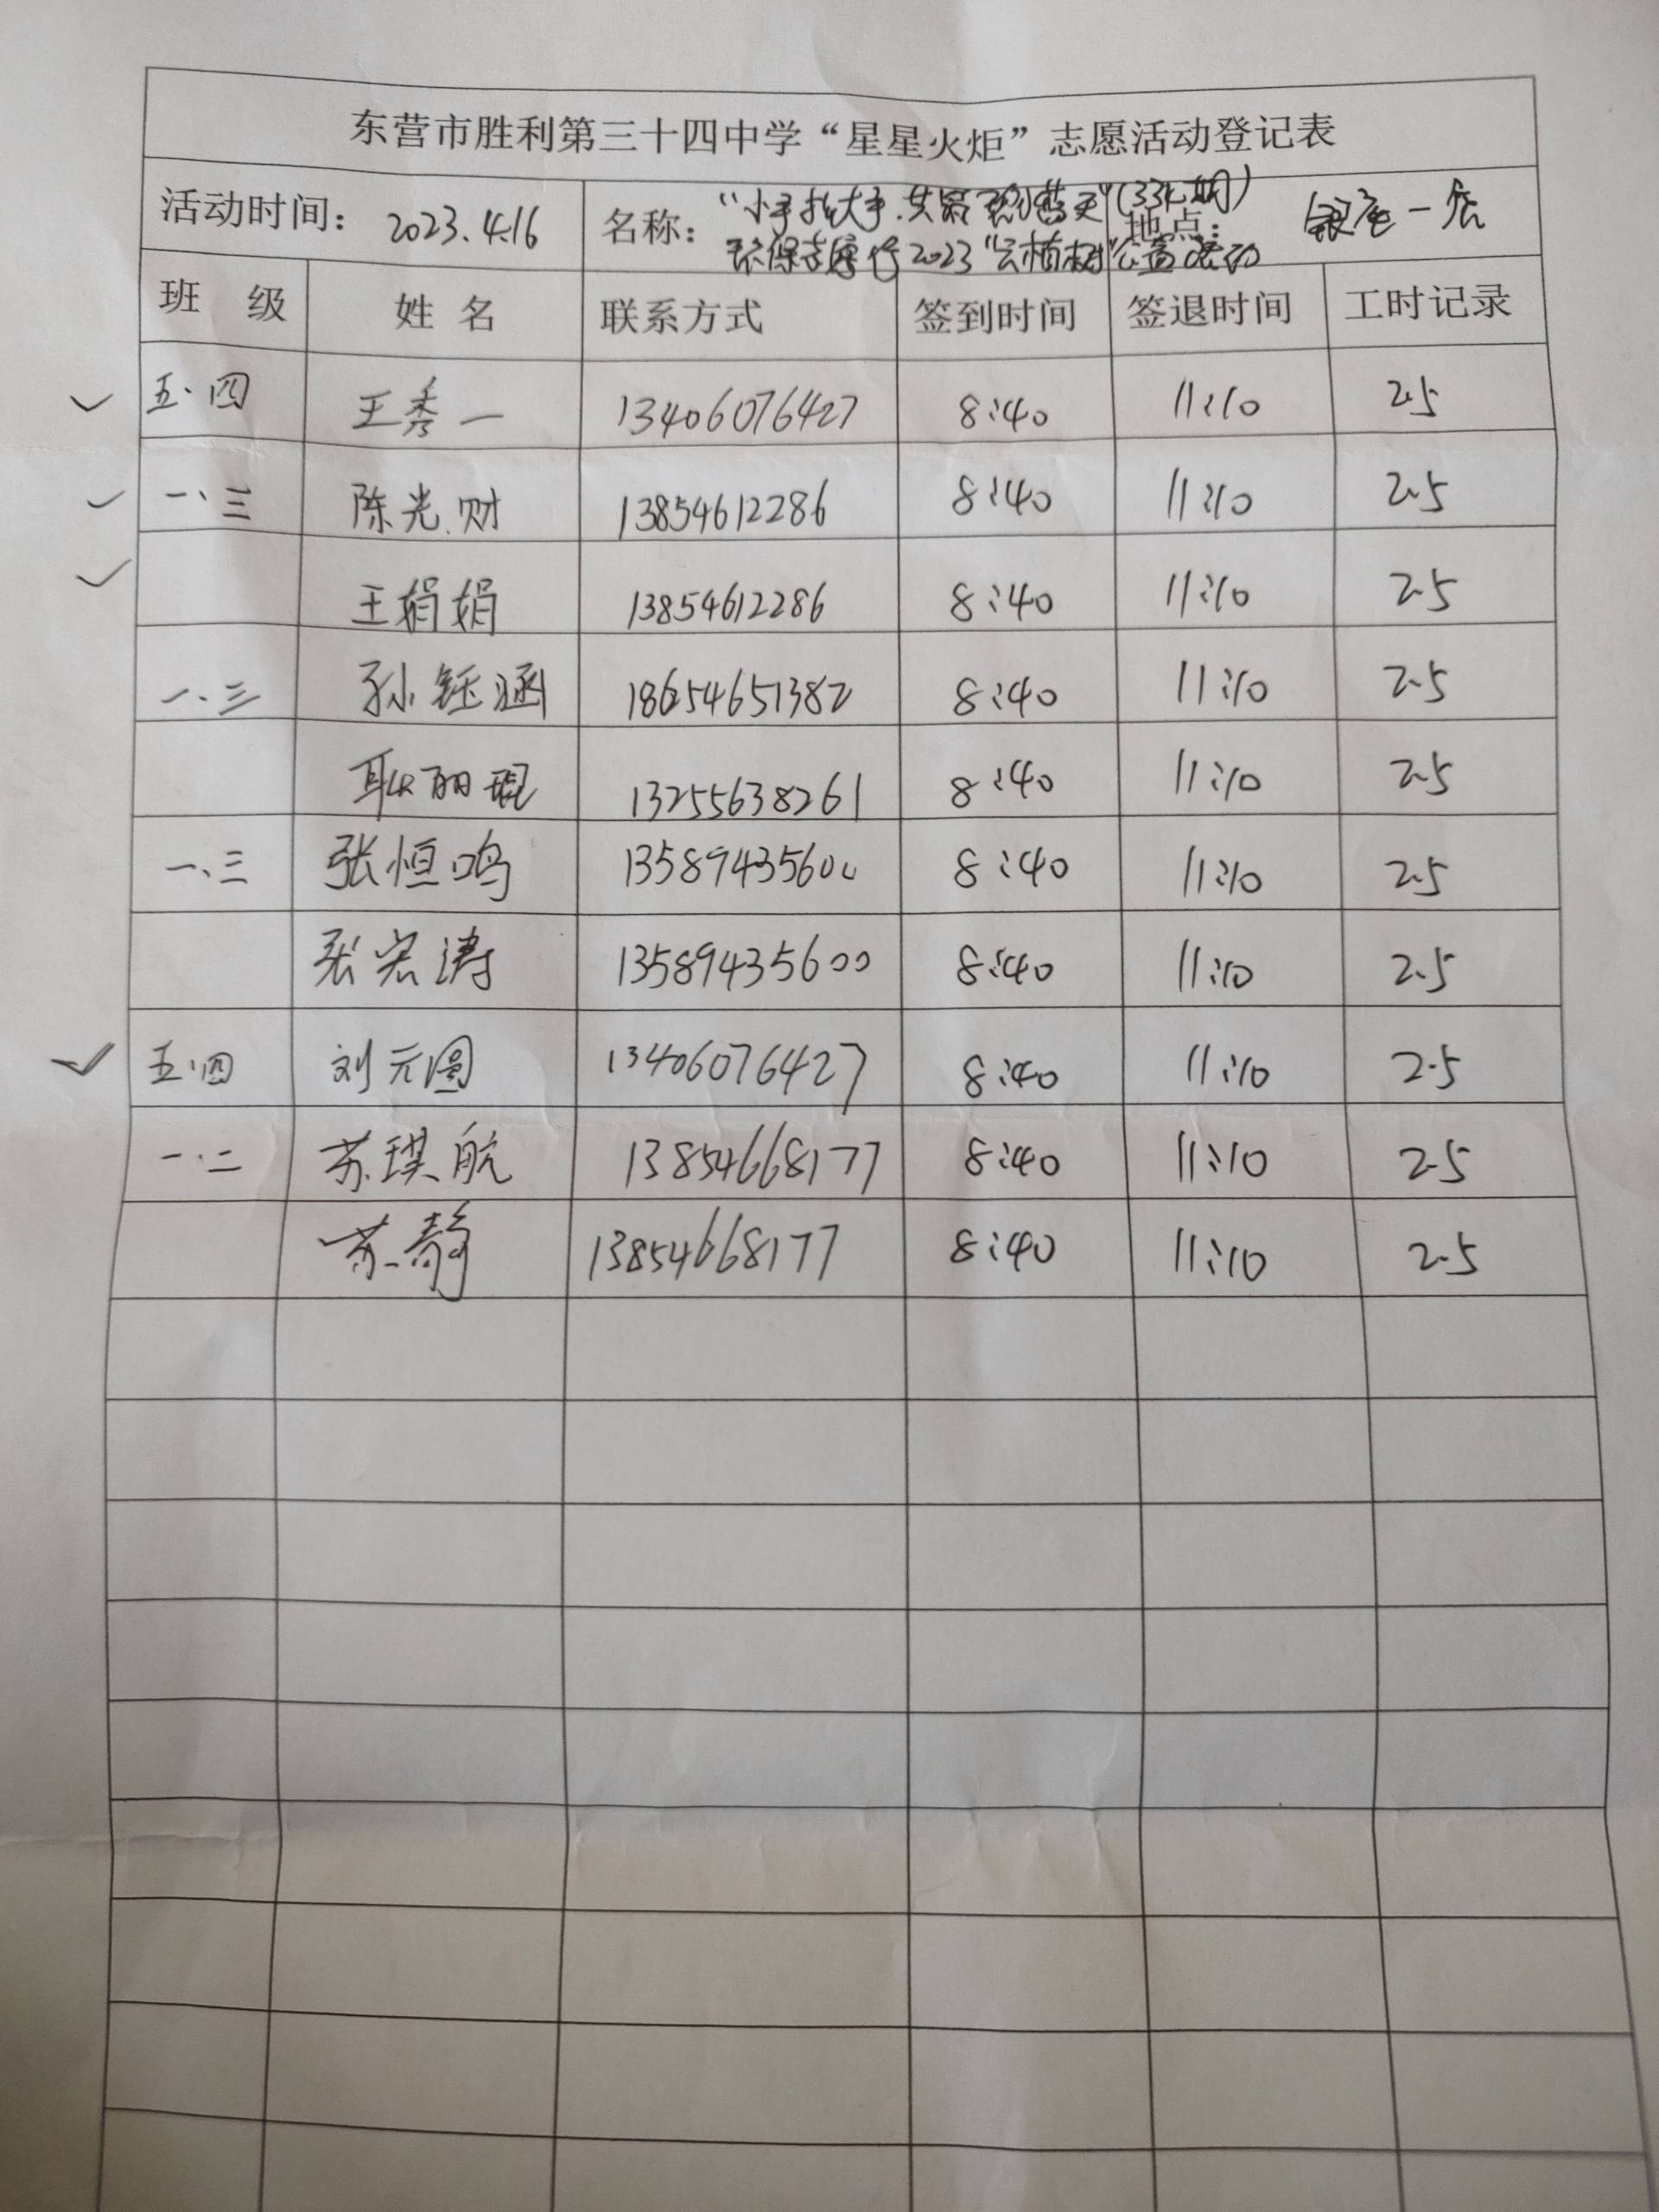 东营市胜利第三十四中学“星星火炬”志愿活动登记表
活动时间: 2023.4.16 名称: “小手拉大手.共留碧水蓝天”(334期) 地点: 银座一店
环保志愿行2023“云植树”公益活动
班 级 姓 名 联系方式 签到时间 签退时间 工时记录
五.四 王秀一 13406076427 8:40 11:10 2.5
一、三 陈光财 13854612286 8:40 11:10 2.5
王娟娟 13854612286 8:40 11:10 2.5
一.三 孙钰涵 18654651382 8:40 11:10 2.5
耿丽琨 13255638261 8:40 11:10 2.5
一、三 张恒鸣 13589435600 8:40 11:10 2.5
张宏涛 13589435600 8:40 11:10 2.5
五.四 刘元圆 13406076427 8:40 11:10 2.5
一.二 苏琪航 13854668177 8:40 11:10 2.5
苏静 13854668177 8:40 11:10 2.5